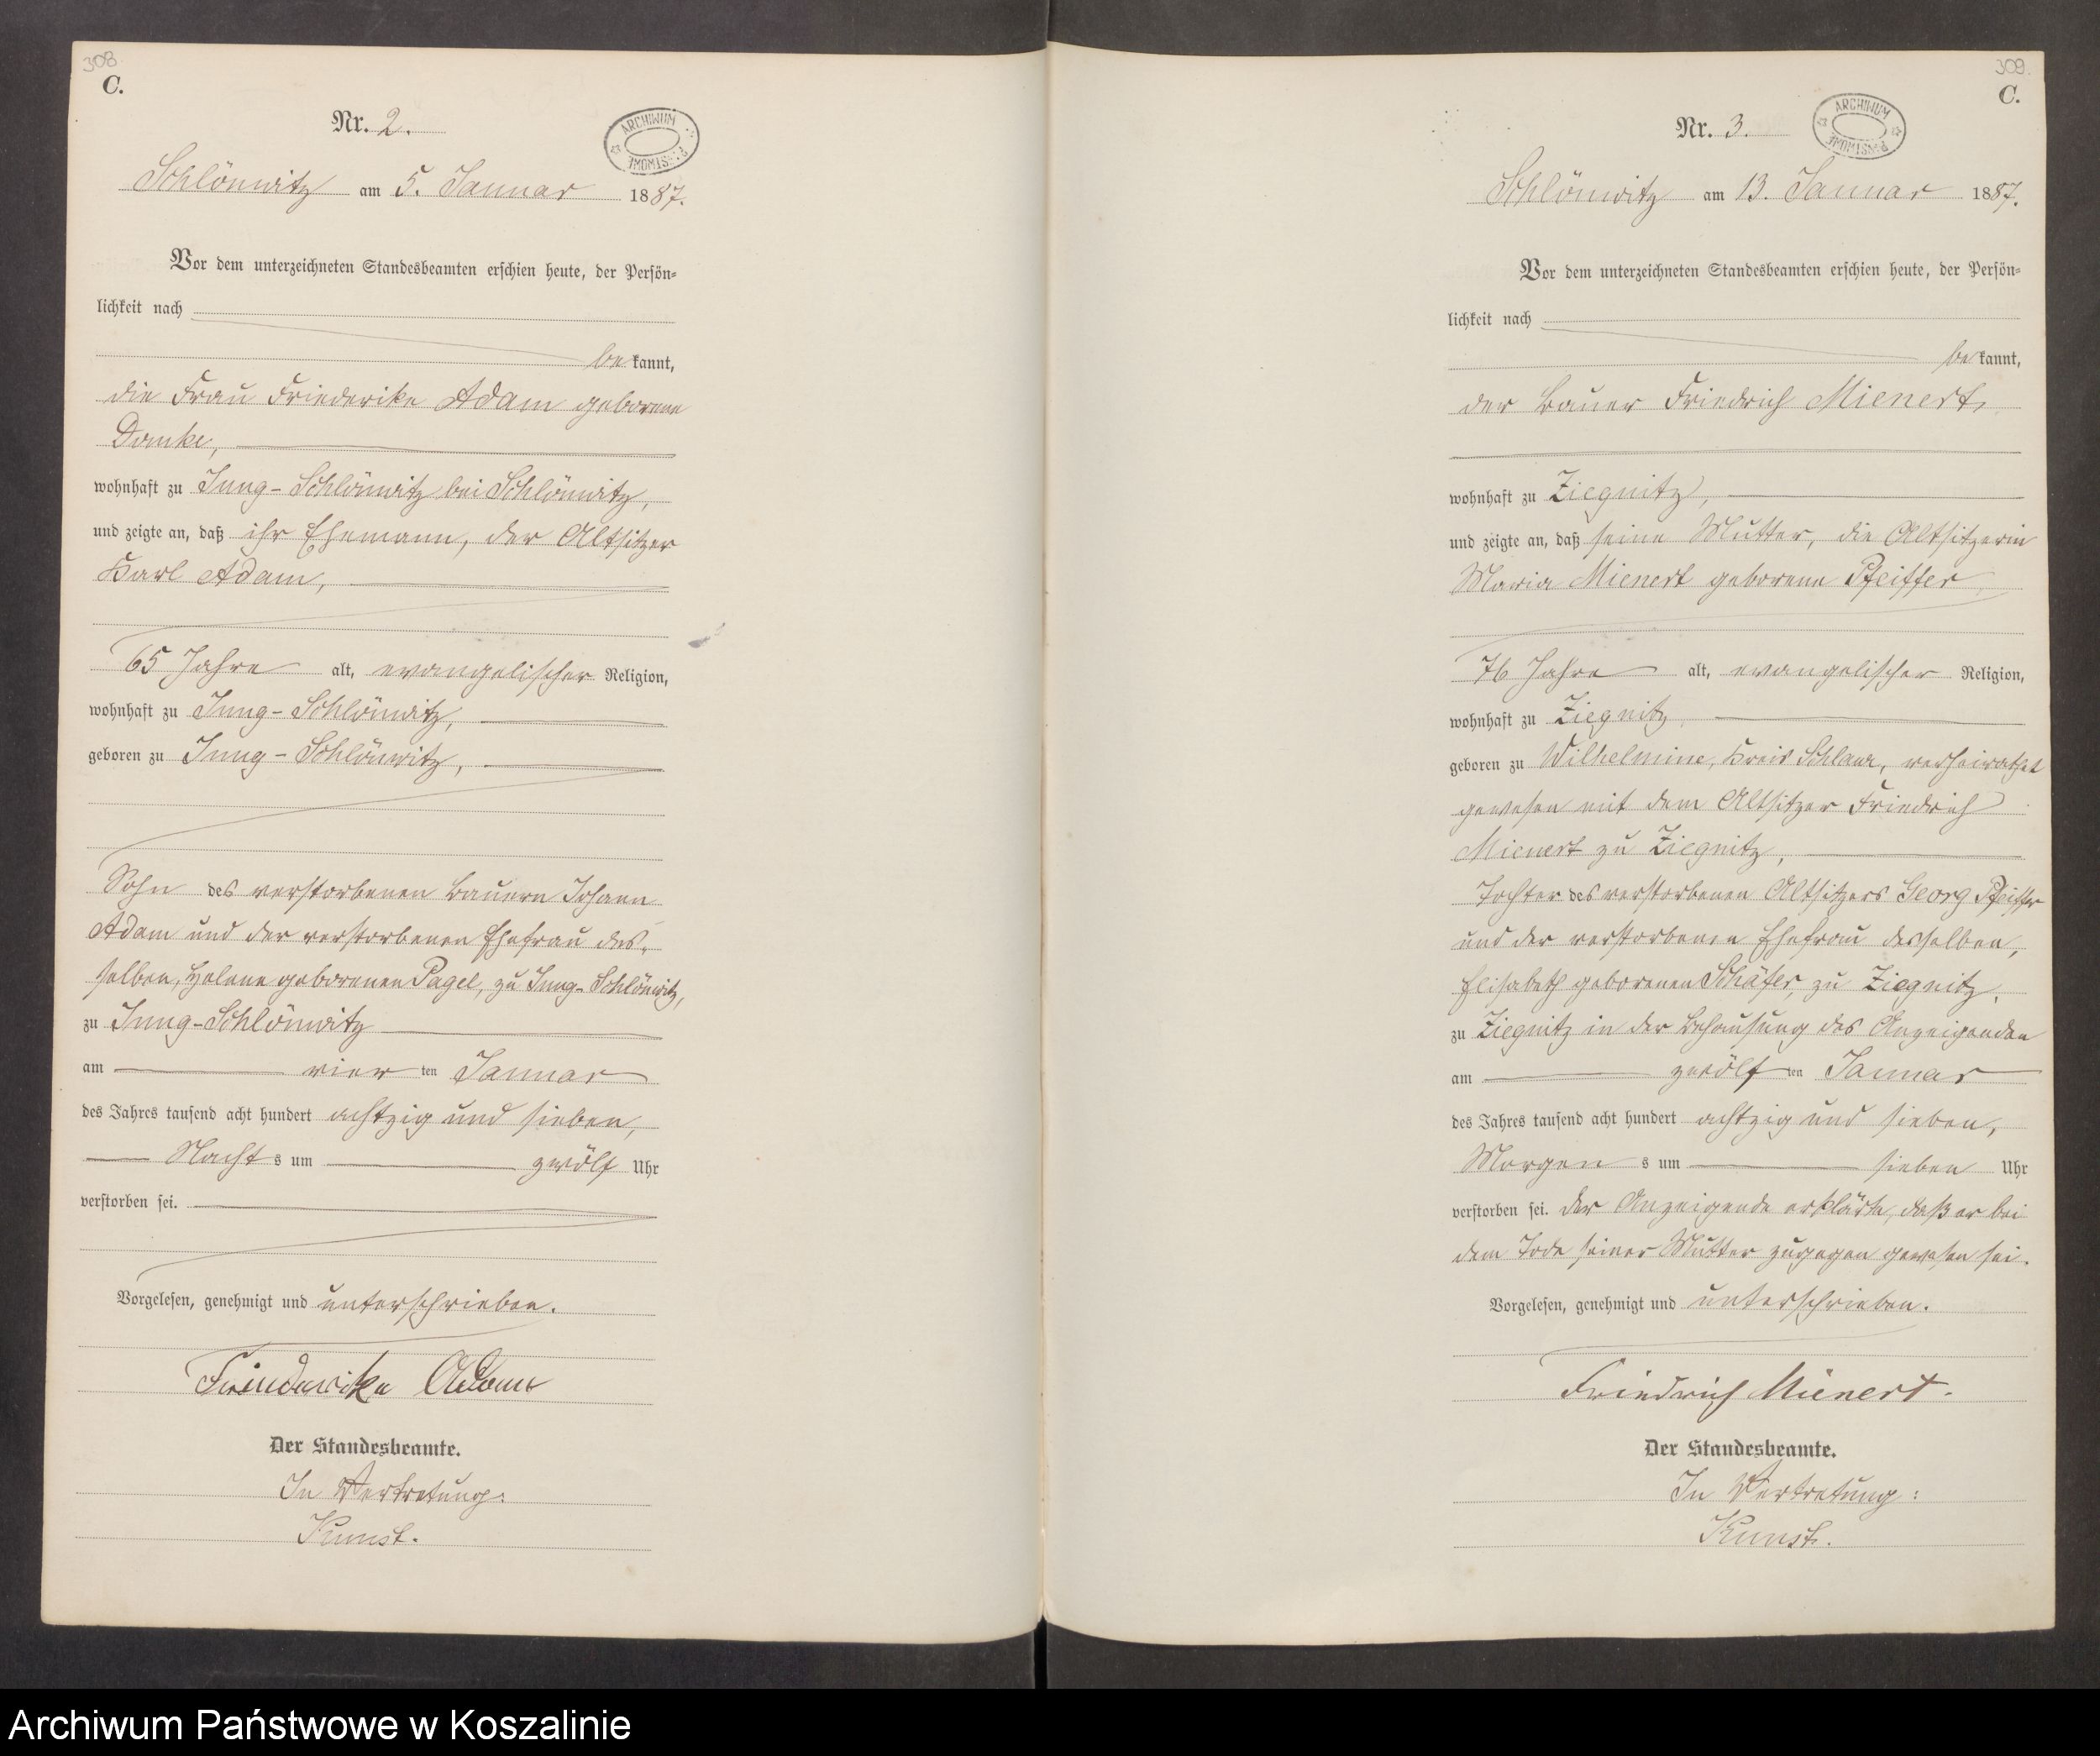 308.
C.
Nr. 2.
ARCHIWUM
Schlönwitz am 5. Januar 1887.
Vor dem unterzeichneten Standesbeamten erschien heute, der Persön-
lichkeit nach
bekannt,
die Frau Friederike Adam geborene
Damke,
wohnhaft zu Jung-Schlönwitz bei Schlönwitz,
und zeigte an, daß ihr Ehemann, der Altsitzer
Karl Adam,
65 Jahre alt, evangelischer Religion,
wohnhaft zu Jung-Schlönwitz,
geboren zu Jung-Schlönwitz,
Sohn des verstorbenen Bauern Johann
Adam und der verstorbenen Ehefrau des-
selben, Helene geborenen Pagel, zu Jung-Schlönwitz,
zu Jung-Schlönwitz
am vierten Januar
des Jahres tausend acht hundert achtzig und sieben,
Nachts um zwölf Uhr
verstorben sei.
Vorgelesen, genehmigt und unterschrieben.
Friederike Adam
Der Standesbeamte.
In Vertretung:
Kunst.
309.
C.
Nr. 3.
ARCHIWUM
Schlönwitz am 13. Januar 1887.
Vor dem unterzeichneten Standesbeamten erschien heute, der Persön-
lichkeit nach
bekannt,
der Bauer Friedrich Mienert,
wohnhaft zu Ziegnitz,
und zeigte an, daß seine Mutter, die Altsitzerin
Maria Mienert geborene Pfeiffer
76 Jahre alt, evangelischer Religion,
wohnhaft zu Ziegnitz,
geboren zu Wilhelmine, Kreis Schlawe, verheirathet
gewesen mit dem Altsitzer Friedrich
Mienert zu Ziegnitz,
Tochter des verstorbenen Altsitzers Georg Pfeiffer
und der verstorbenen Ehefrau desselben,
Elisabeth geborenen Schäfer, zu Ziegnitz,
zu Ziegnitz in der Behausung des Anzeigenden
am zwölften Januar
des Jahres tausend acht hundert achtzig und sieben,
Morgens um sieben Uhr
verstorben sei. Der Anzeigende erklärte, daß er bei
dem Tode seiner Mutter zugegen gewesen sei.
Vorgelesen, genehmigt und unterschrieben.
Friedrich Mienert.
Der Standesbeamte.
In Vertretung:
Kunst.
Archiwum Państwowe w Koszalinie